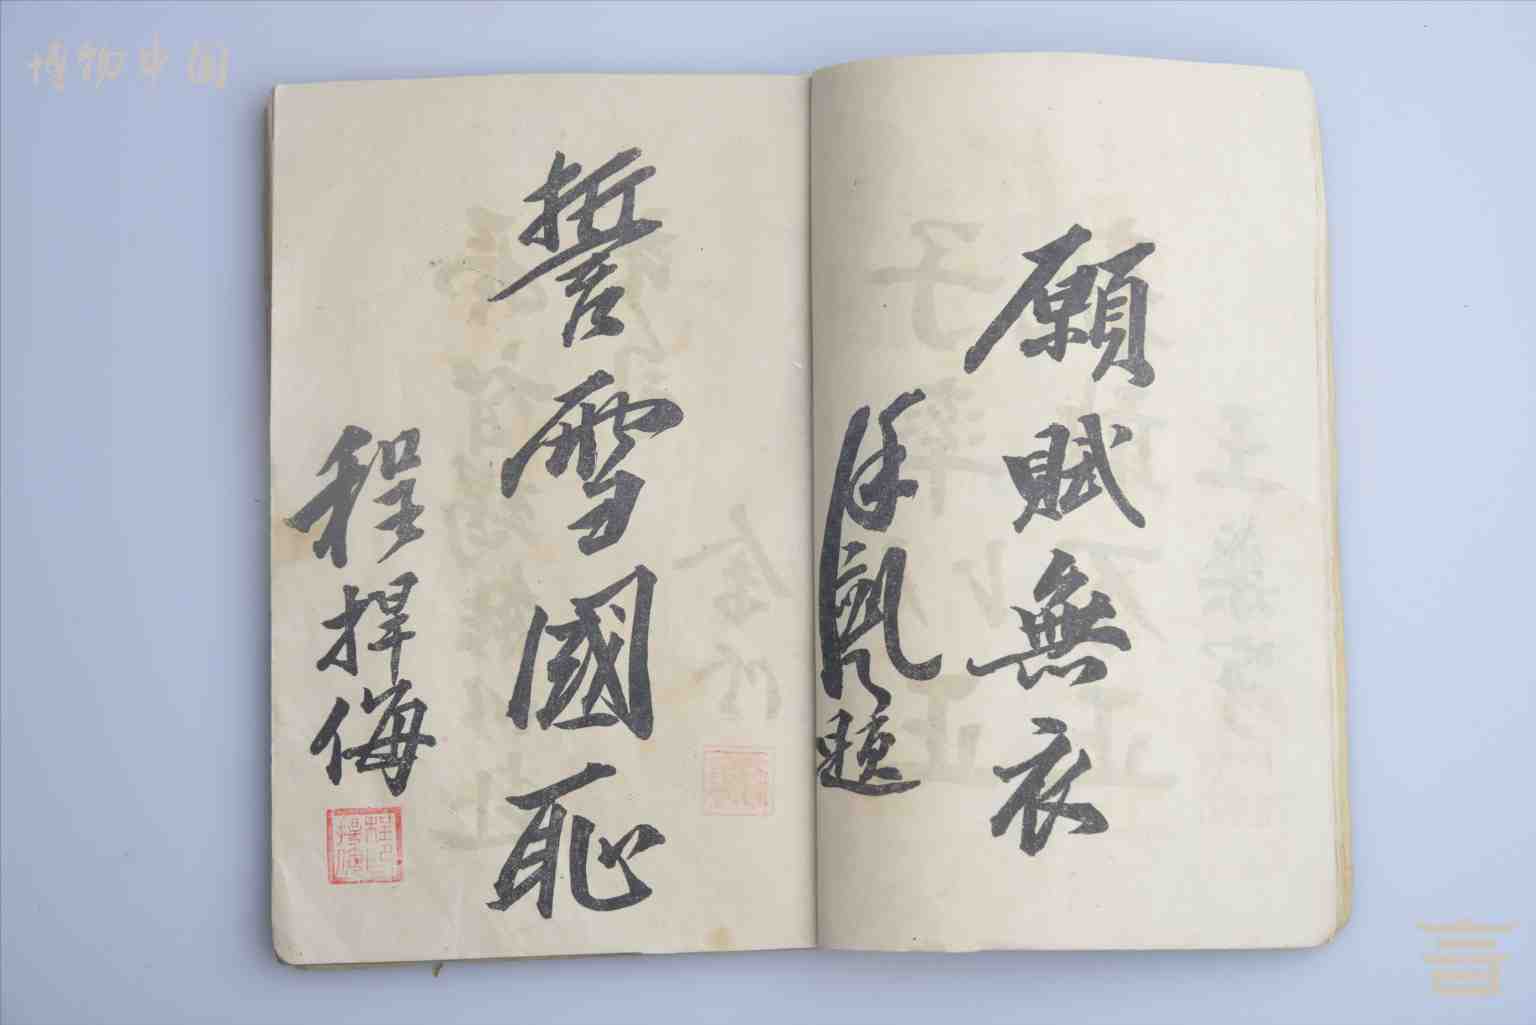 博物中国
願賦無衣
徐凱題
誓雪國恥
程捍侮
程捍侮印
言